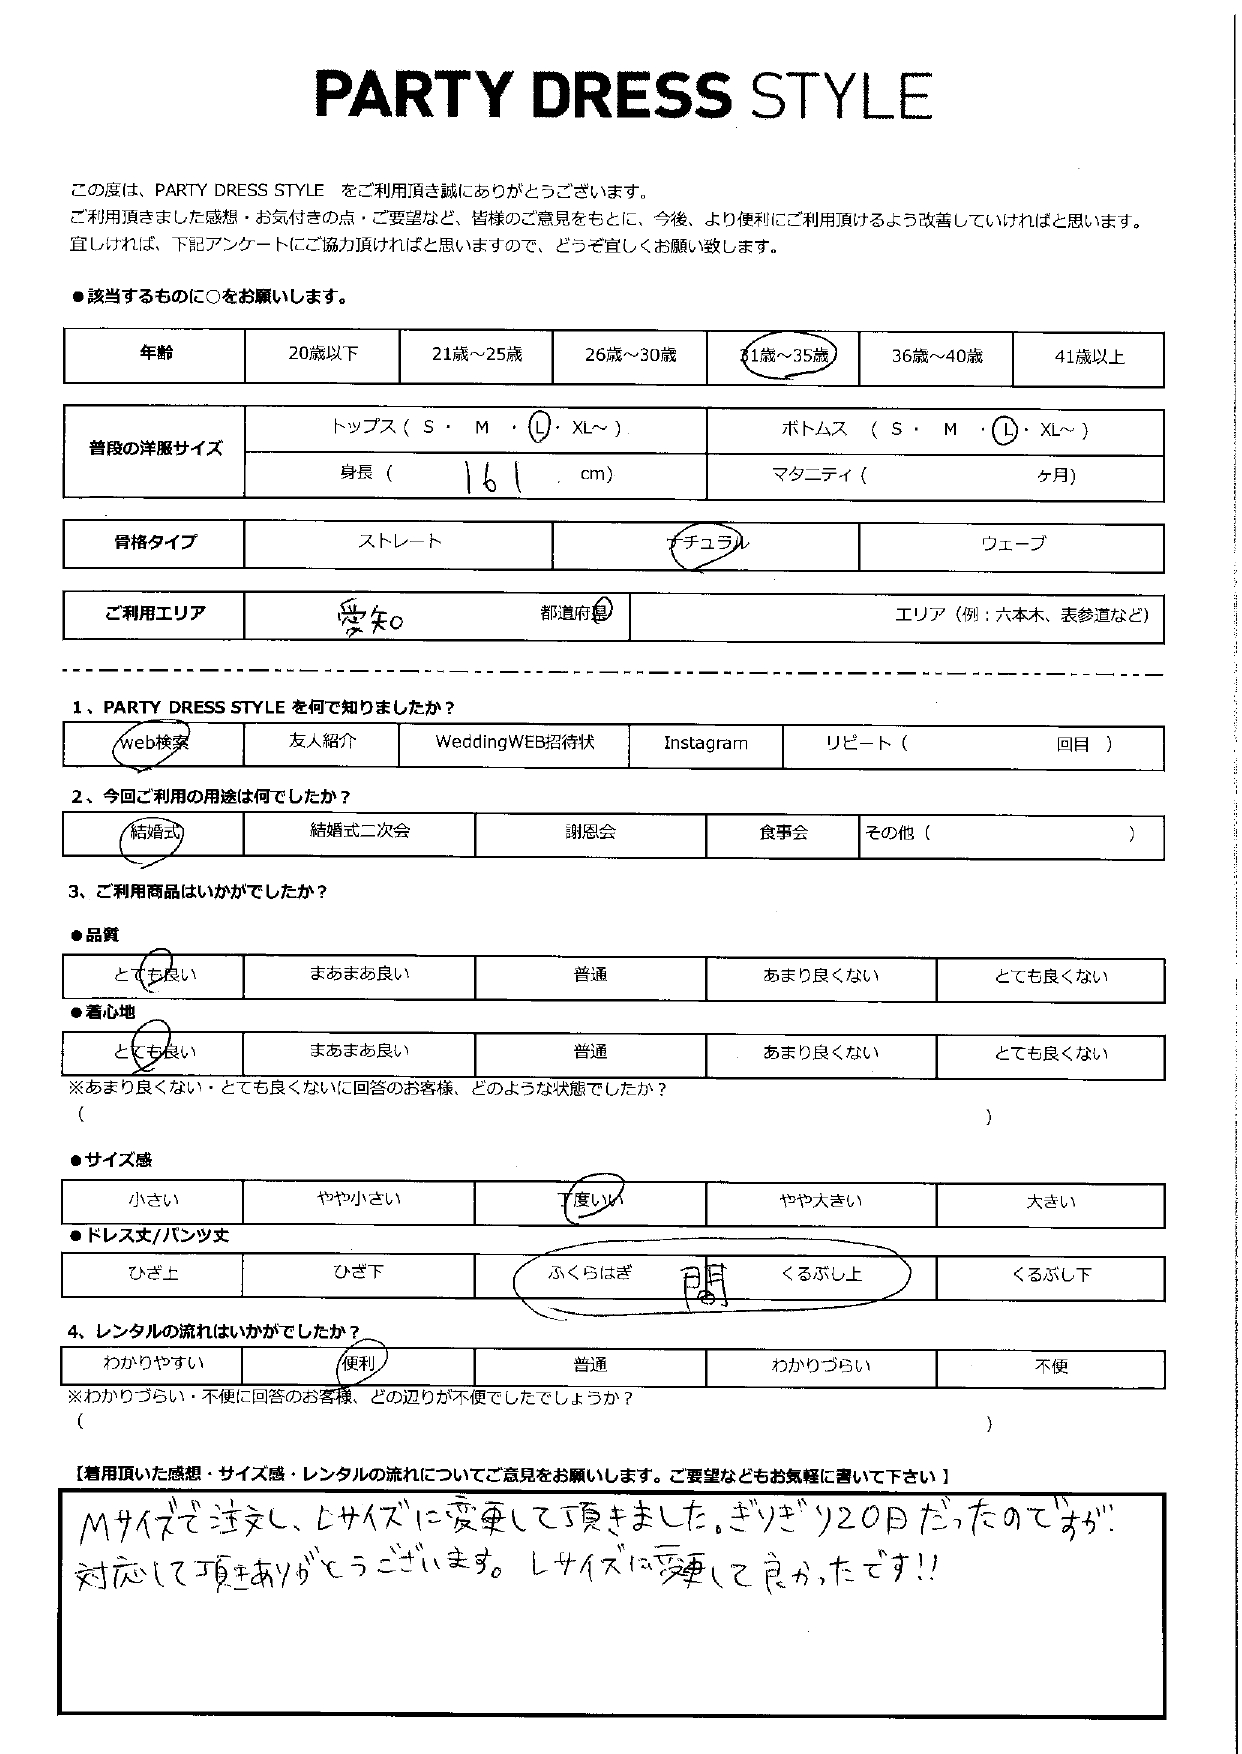 PARTY DRESS STYLE
この度は、PARTY DRESS STYLE をご利用頂き誠にありがとうございます。
ご利用頂きました感想・お気付きの点・ご要望など、皆様のご意見をもとに、今後、より便利にご利用頂けるよう改善していければと思います。
宜しければ、下記アンケートにご協力頂ければと思いますので、どうぞ宜しくお願い致します。
●該当するものに○をお願いします。
年齢 20歳以下 21歳～25歳 26歳～30歳 31歳～35歳 36歳～40歳 41歳以上
普段の洋服サイズ トップス ( S ・ M ・ L ・ XL～ ) ボトムス ( S ・ M ・ L ・ XL～ )
身長 ( 161 cm) マタニティ ( ヶ月)
骨格タイプ ストレート ナチュラル ウェーブ
ご利用エリア 愛知 都道府県 エリア (例：六本木、表参道など)
1、PARTY DRESS STYLE を何で知りましたか？
web検索 友人紹介 WeddingWEB招待状 Instagram リピート ( 回目 )
2、今回ご利用の用途は何でしたか？
結婚式 結婚式二次会 謝恩会 食事会 その他 ( )
3、ご利用商品はいかがでしたか？
●品質
とても良い まあまあ良い 普通 あまり良くない とても良くない
●着心地
とても良い まあまあ良い 普通 あまり良くない とても良くない
※あまり良くない・とても良くないに回答のお客様、どのような状態でしたか？
( )
●サイズ感
小さい やや小さい 丁度いい やや大きい 大きい
●ドレス丈/パンツ丈
ひざ上 ひざ下 ふくらはぎ 間 くるぶし上 くるぶし下
4、レンタルの流れはいかがでしたか？
わかりやすい 便利 普通 わかりづらい 不便
※わかりづらい・不便に回答のお客様、どの辺りが不便でしたでしょうか？
( )
【着用頂いた感想・サイズ感・レンタルの流れについてご意見をお願いします。ご要望などもお気軽に書いて下さい】
Mサイズで注文し、Lサイズに変更して頂きました。ぎりぎり20日だったのですが、
対応して頂きありがとうございます。Lサイズに変更して良かったです!!